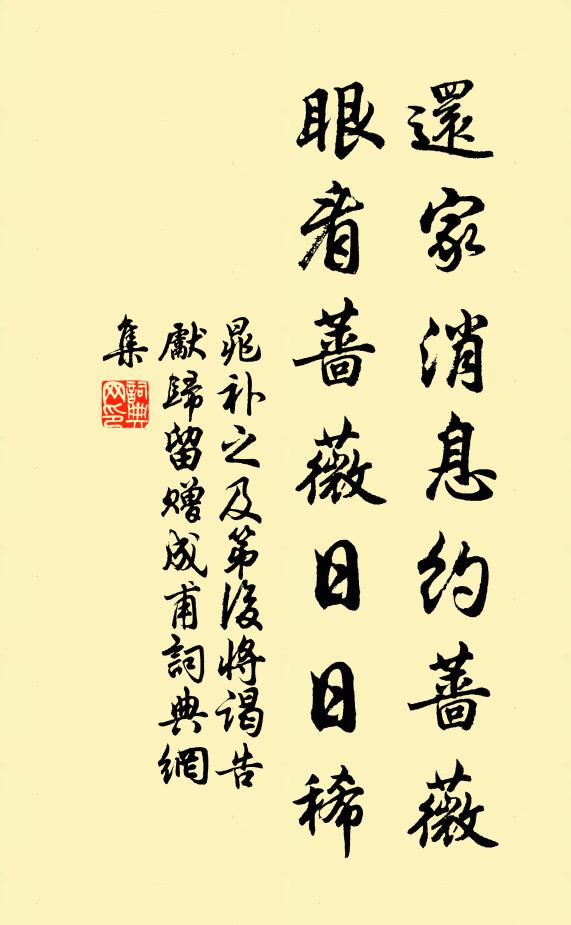 還家消息約薔薇
眼看薔薇日日稀
晁补之及第後将謁告
獻歸留赠成甫詞典網
集
詞典
网印